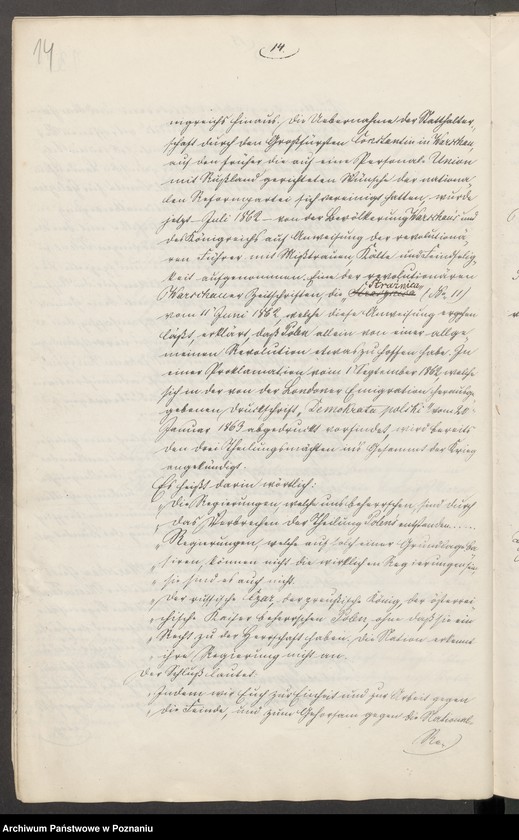 14
14.
nigreichs hinaus. Die Uebernahme der Statthalter-
schaft durch den Großfürsten Constantin in Warschau,
auf den früher die auf eine Personal-Union
mit Rußland gerichteten Wünsche der nationa-
len Reformpartei sich vereinigt hatten, wurde
jetzt – Juli 1862 – von der Bevölkerung Warschaus und
des Königreichs auf Anweisung der revolutionä-
ren Führer mit Mißtrauen, Kälte und Feindselig-
keit aufgenommen. Eine der revolutionären
Strażnica
Warschauer Zeitschriften, die „ " (No 11)
vom 11 Juni 1862, welche diese Anweisung ergehen
läßt, erklärt, daß Polen allein von einer allge-
meinen Revolution etwas zu hoffen habe. In
einer Proklamation vom 1 September 1862, welche
sich in der von der Londoner Emigration herausge-
gebenen Druckschrift „Demokrata polski" vom
Januar 1863 abgedruckt vorfindet, wird bereits
den drei Theilungsmächten ins Gesammt der Krieg
angekündigt.
Es heißt darin wörtlich:
„Die Regierungen, welche uns beherrschen, sind durch
„das Verbrechen der Theilung Polens entstanden.....
„Regierungen, welche auf solch einer Grundlage ba-
„siren, können nicht die wirklichen Regierungen sein
„sie sind es auch nicht.
„Der russische Czar, der preußische König, der österrei-
„chische Kaiser beherrschen Polen, ohne daß sie ein
„Recht zu der Herrschaft haben. Die Nation erkennt
„ihre Regierung nicht an.
Der Schluß lautet
„Indem wir Euch zur Einheit und zur Arbeit gegen
„die Feinde, und zum Gehorsam gegen die National-
Re-
Archiwum Państwowe w Poznaniu